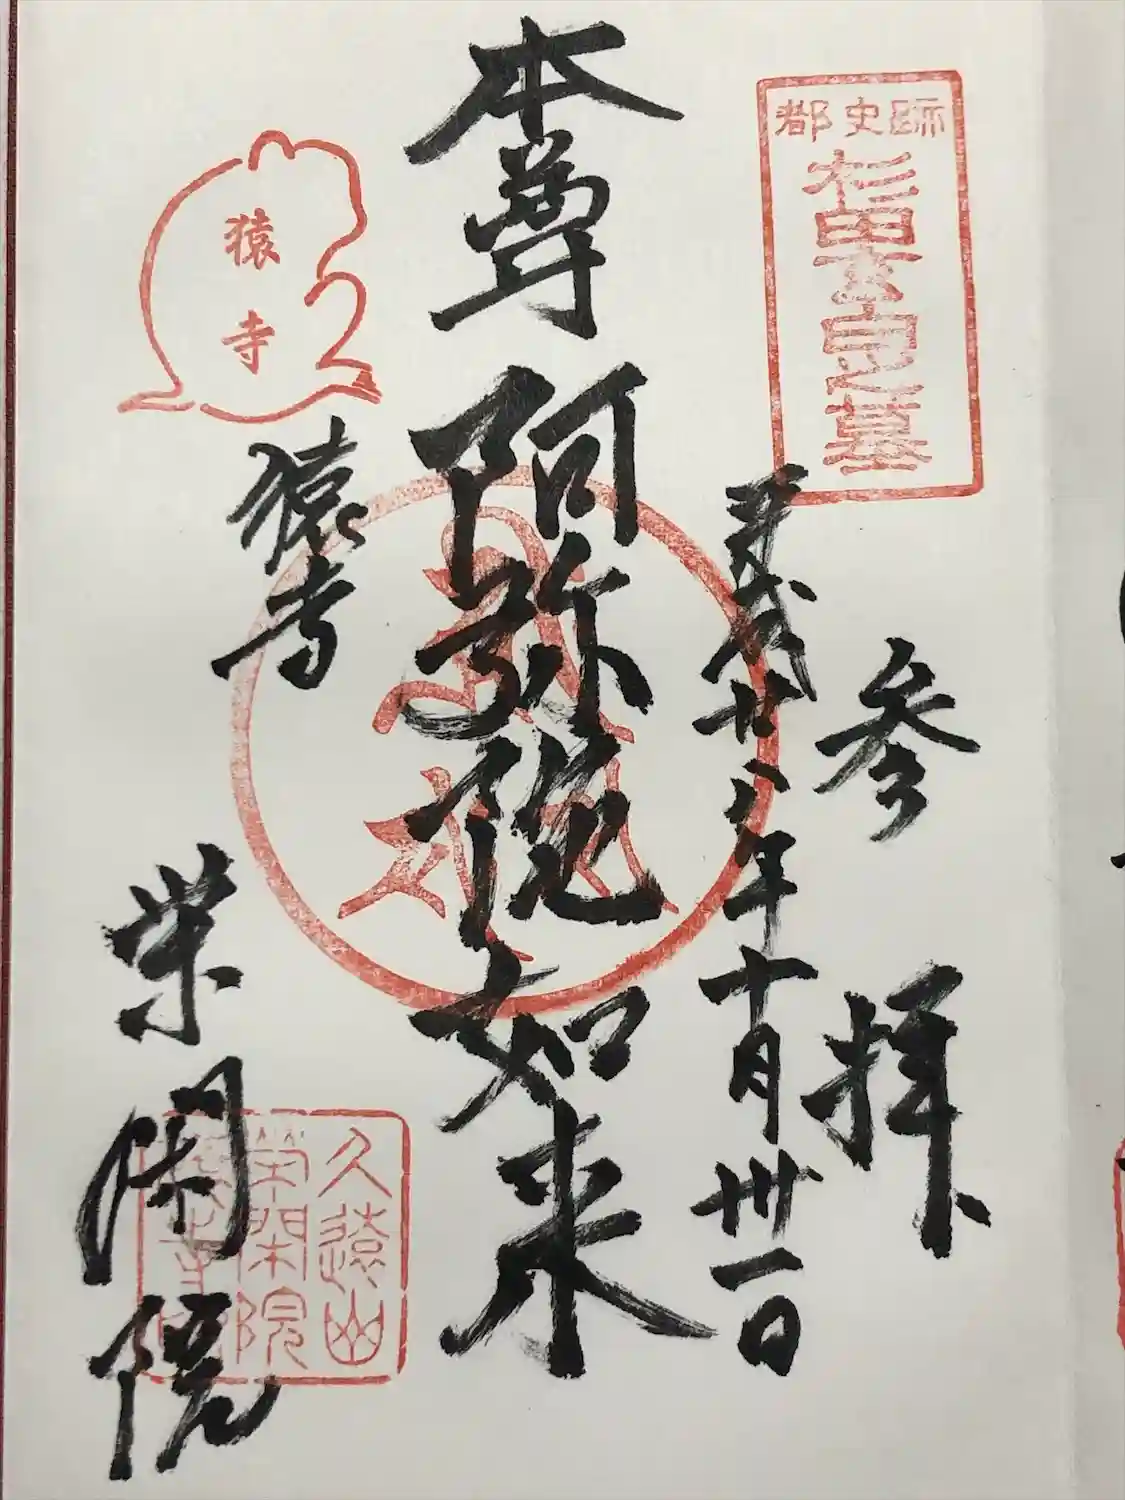 都史跡
杉田玄白之墓
参拝
平成廿八年十月卅一日
本尊 阿弥陀如来
猿寺
猿寺
栄閑院
久遠山
栄閑院